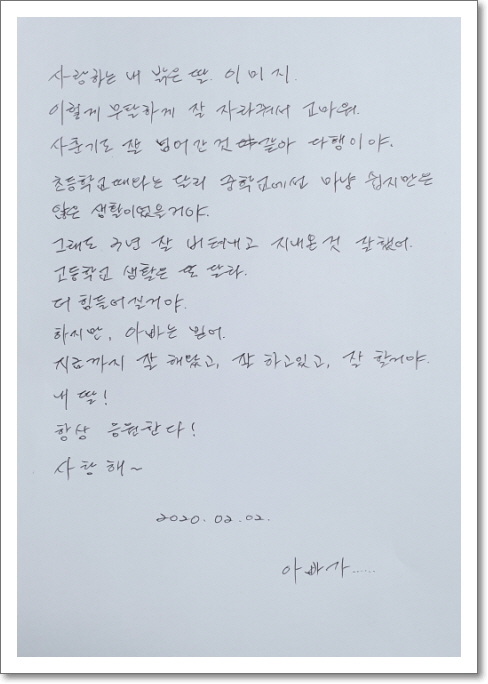 사랑하는 내 밝은 딸. 이미지.
이렇게 무탈하게 잘 자라줘서 고마워.
사춘기도 잘 넘어간 것 같아 다행이야.
초등학교때와는 달리 중학교에선 마냥 쉽지만은
않은 생활이었을거야.
그래도 3년 잘 버텨내고 지내온 것 잘했어.
고등학교 생활은 또 달라.
더 힘들어질거야.
하지만, 아빠는 믿어.
지금까지 잘 해왔고, 잘 하고있고, 잘 할거야.
내 딸!
항상 응원한다!
사랑해~
2020. 02. 02.
아빠가......